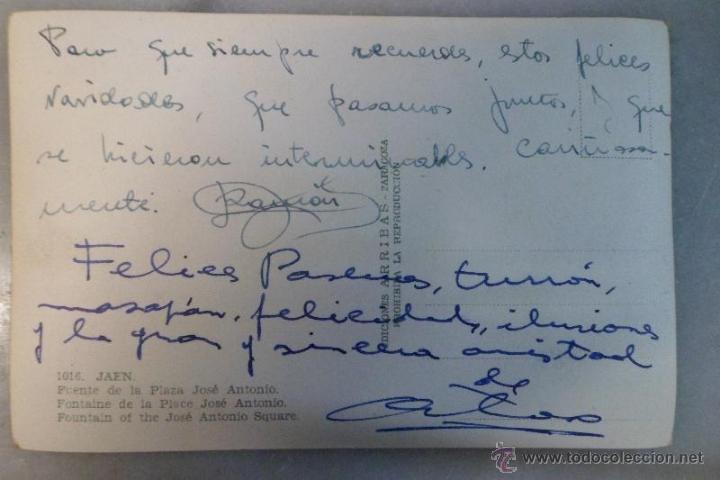 Para que siempre recuerdes, estos felices
Navidades, que pasamos juntos, y que
se hicieron interminables. Cariñosa-
mente. Ramón
Felices Pascuas, turrón,
masapán, felicidades, ilusiones
y la gran y sincera amistad
de
EDICIONES ARRIBAS - ZARAGOZA
PROHIBIDA LA REPRODUCCION
1016. JAEN.
Fuente de la Plaza José Antonio.
Fontaine de la Place José Antonio.
Fountain of the José Antonio Square.
www.todocoleccion.net